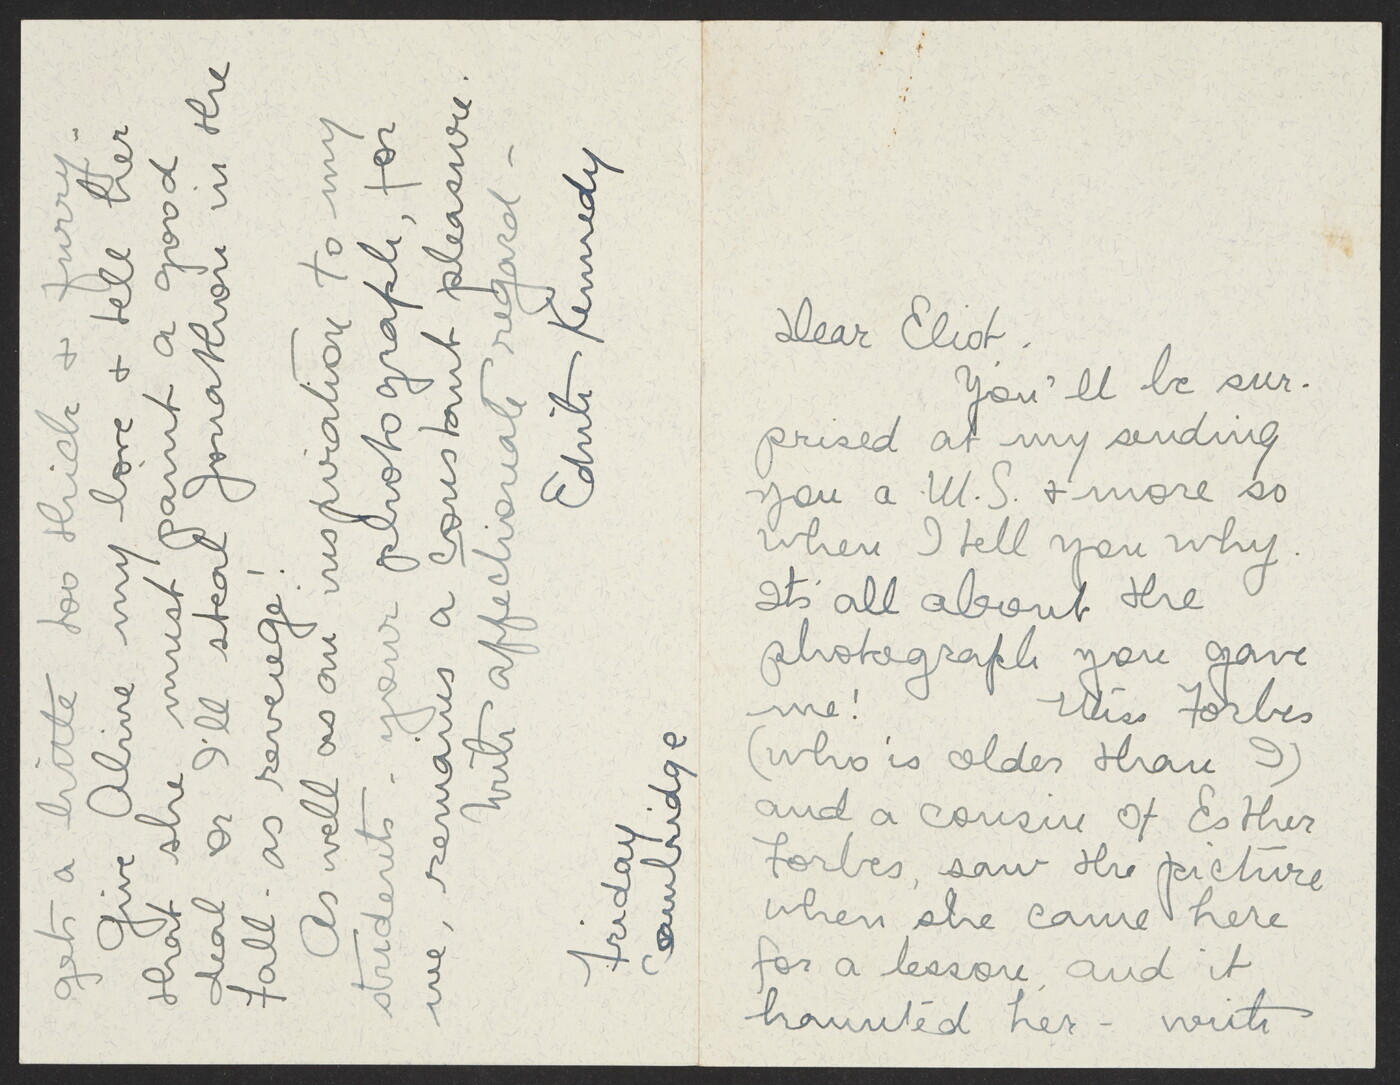 Dear Eliot.
You'll be sur-
prised at my sending
you a M.S. & more so
when I tell you why.
Its all about the
photograph you gave
me! Miss Forbes
(who is older than I)
and a cousin of Esther
Forbes, saw the picture
when she came here
for a lesson, and it
haunted her - with
gets a little too thick & furry.
Give Aline my love & tell her
that she must paint a good
deal or I'll steal Jonathon in the
fall - as revenge!
As well as an inspiration to my
students - your photograph, for
me, remains a constant pleasure.
With affectionate regard -
Edith Kennedy
Friday
Cambridge